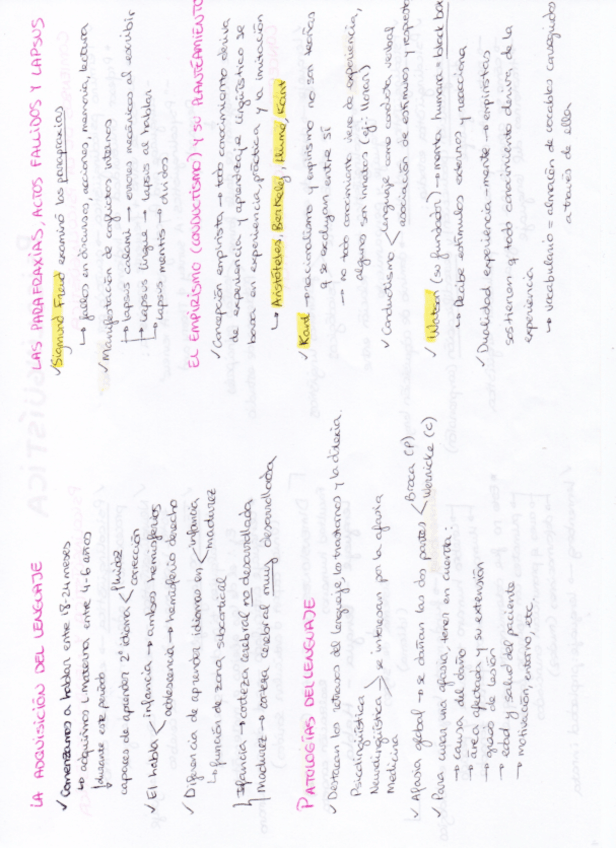 LA ADQUISICIÓN DEL LENGUAJE
✓ Comenzamos a hablar entre 18-24 meses
↳ adquirimos L. materna entre 4-6 años
durante este periodo
capaces de aprender 2º idioma < fluidez
corrección
✓ El habla < infancia → ambos hemisferios
adolescencia → hemisferio derecho
✓ Diferencia de aprender idiomas en < infancia
madurez
↳ función de zona subcortical
Infancia → corteza cerebral no desarrollada
Madurez → corteza cerebral muy desarrollada
PATOLOGÍAS DEL LENGUAJE
✓ Destacan los retrasos del lenguaje, los trastornos y la dislexia.
Psicolingüística
Neurolingüística > se interesan por la afasia
Medicina
✓ Afasia global → se dañan las dos partes < Broca (P)
Wernicke (C)
✓ Para curar una afasia, tener en cuenta:
→ causa del daño
→ área afectada y su extensión
→ grado de lesión
→ edad y salud del paciente
→ motivación, entorno, etc.
LAS PARAFRAXIAS, ACTOS FALLIDOS Y LAPSUS
✓ Sigmund Freud examinó las parapraxias
↳ fallos en discursos, acciones, memoria, lectura
✓ Manifestación de conflictos internos
↳ lapsus calami → errores mecánicos al escribir
↳ lapsus linguae → lapsus al hablar
↳ lapsus mentis → olvidos
EL EMPIRISMO (CONDUCTISMO) Y SU PLANTEAMIENTO
✓ Concepción empirista → todo conocimiento deriva
de experiencia y aprendizaje lingüístico se
basa en experiencia, práctica y la imitación
↳ Aristóteles, Berkeley, Hume, Kant
✓ Kant → racionalismo y empirismo no son teorías
q se excluyan entre sí
→ no todo conocimiento viene de experiencia,
algunos son innatos (ej: llorar)
✓ Conductismo < lenguaje como conducta verbal
asociación de estímulos y respuesta
✓ Watson (su fundador) → mente humana = black box
↳ Recibe estímulos externos y reacciona
✓ Dualidad experiencia-mente → empiristas
sostienen q todo conocimiento deriva de la
experiencia
↳ vocabulario = almacén de vocablos conseguidos
a través de ella